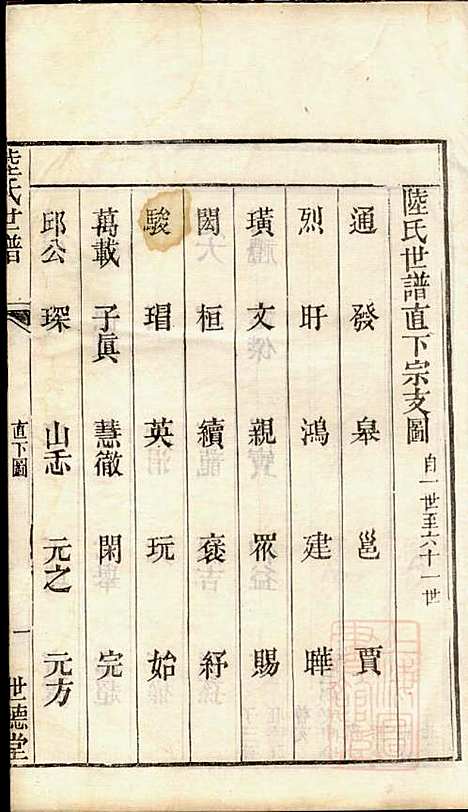 陸氏世譜直下宗支圖 自一世至六十一世
通 發 皋 邕 賈
烈 盱 鴻 建 曄
璜 文 親 眾 賜
閎 桓 續 褒 紆
駿 瑁 英 玩 始
萬載 子眞 慧徹 閑 完
邱公 琛 山仚 元之 元方
陸氏世譜 直下圖 一 世德堂